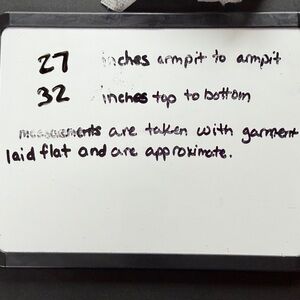 27 inches armpit to armpit
32 inches top to bottom
measurements are taken with garment
laid flat and are approximate.